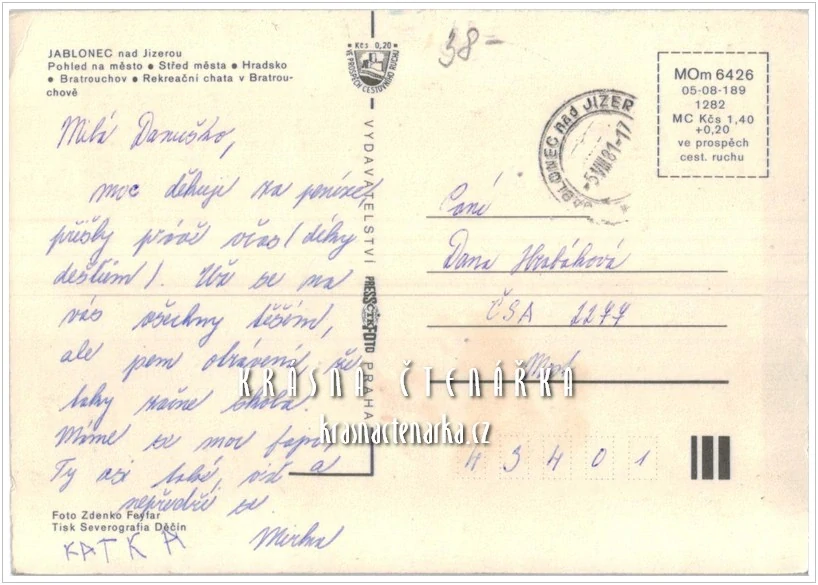 JABLONEC nad Jizerou
Pohled na město • Střed města • Hradsko
• Bratrouchov • Rekreační chata v Bratrou-
chově
Kčs 0,20
VE PROSPĚCH CESTOVNÍHO RUCHU
38-
JABLONEC NAD JIZER
-5.VIII.81-17
MOm 6426
05-08-189
1282
MC Kčs 1,40
+0,20
ve prospěch
cest. ruchu
Milá Danuško,
moc děkuji za peníze,
přišly právě včas (díky
dešťům). Už se na
vás všechny těším,
ale jsem otrávená, že
taky začne škola.
Máme se moc fajn,
Ty asi také, viď a
nepředři se.
Mirka
KATKA
VYDAVATELSTVÍ PRESSFOTO PRAHA
Paní
Dana Hrabáková
ČSA 2277
Most
43401
KRASNA ČTENÁŘKA
krasnactenarka.cz
Foto Zdenko Feyfar
Tisk Severografia Děčín